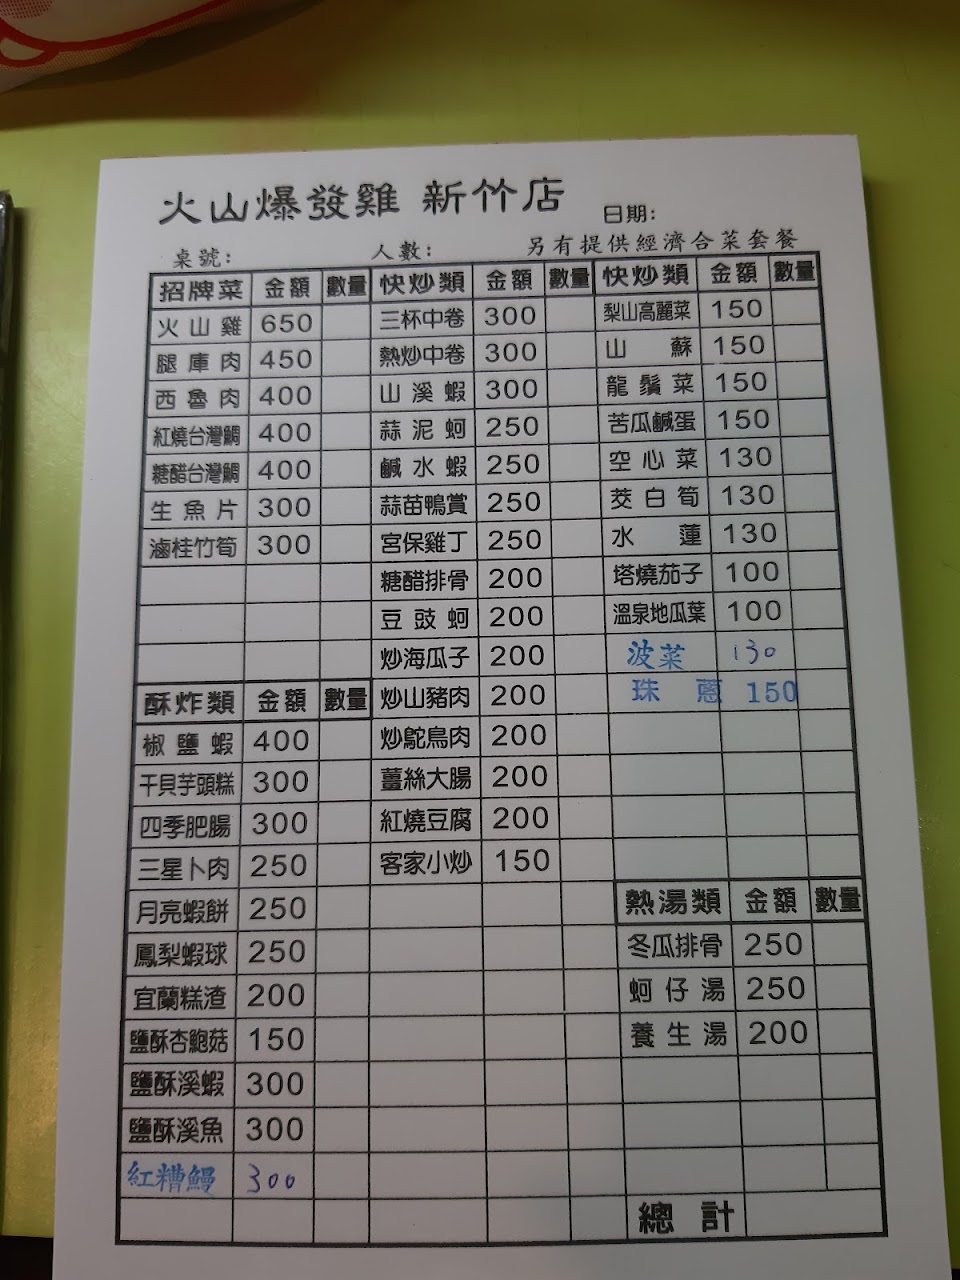 火山爆發雞 新竹店
日期:
桌號: 人數: 另有提供經濟合菜套餐
招牌菜 金額 數量 快炒類 金額 數量 快炒類 金額 數量
火山雞 650 三杯中卷 300 梨山高麗菜 150
腿庫肉 450 熱炒中卷 300 山蘇 150
西魯肉 400 山溪蝦 300 龍鬚菜 150
紅燒台灣鯛 400 蒜泥蚵 250 苦瓜鹹蛋 150
糖醋台灣鯛 400 鹹水蝦 250 空心菜 130
生魚片 300 蒜苗鴨賞 250 茭白筍 130
滷桂竹筍 300 宮保雞丁 250 水蓮 130
糖醋排骨 200 塔燒茄子 100
豆豉蚵 200 溫泉地瓜葉 100
炒海瓜子 200 波菜 130
酥炸類 金額 數量 炒山豬肉 200 珠蔥 150
椒鹽蝦 400 炒鴕鳥肉 200
干貝芋頭糕 300 薑絲大腸 200
四季肥腸 300 紅燒豆腐 200
三星卜肉 250 客家小炒 150
月亮蝦餅 250 熱湯類 金額 數量
鳳梨蝦球 250 冬瓜排骨 250
宜蘭糕渣 200 蚵仔湯 250
鹽酥杏鮑菇 150 養生湯 200
鹽酥溪蝦 300
鹽酥溪魚 300
紅糟鰻 300
總計